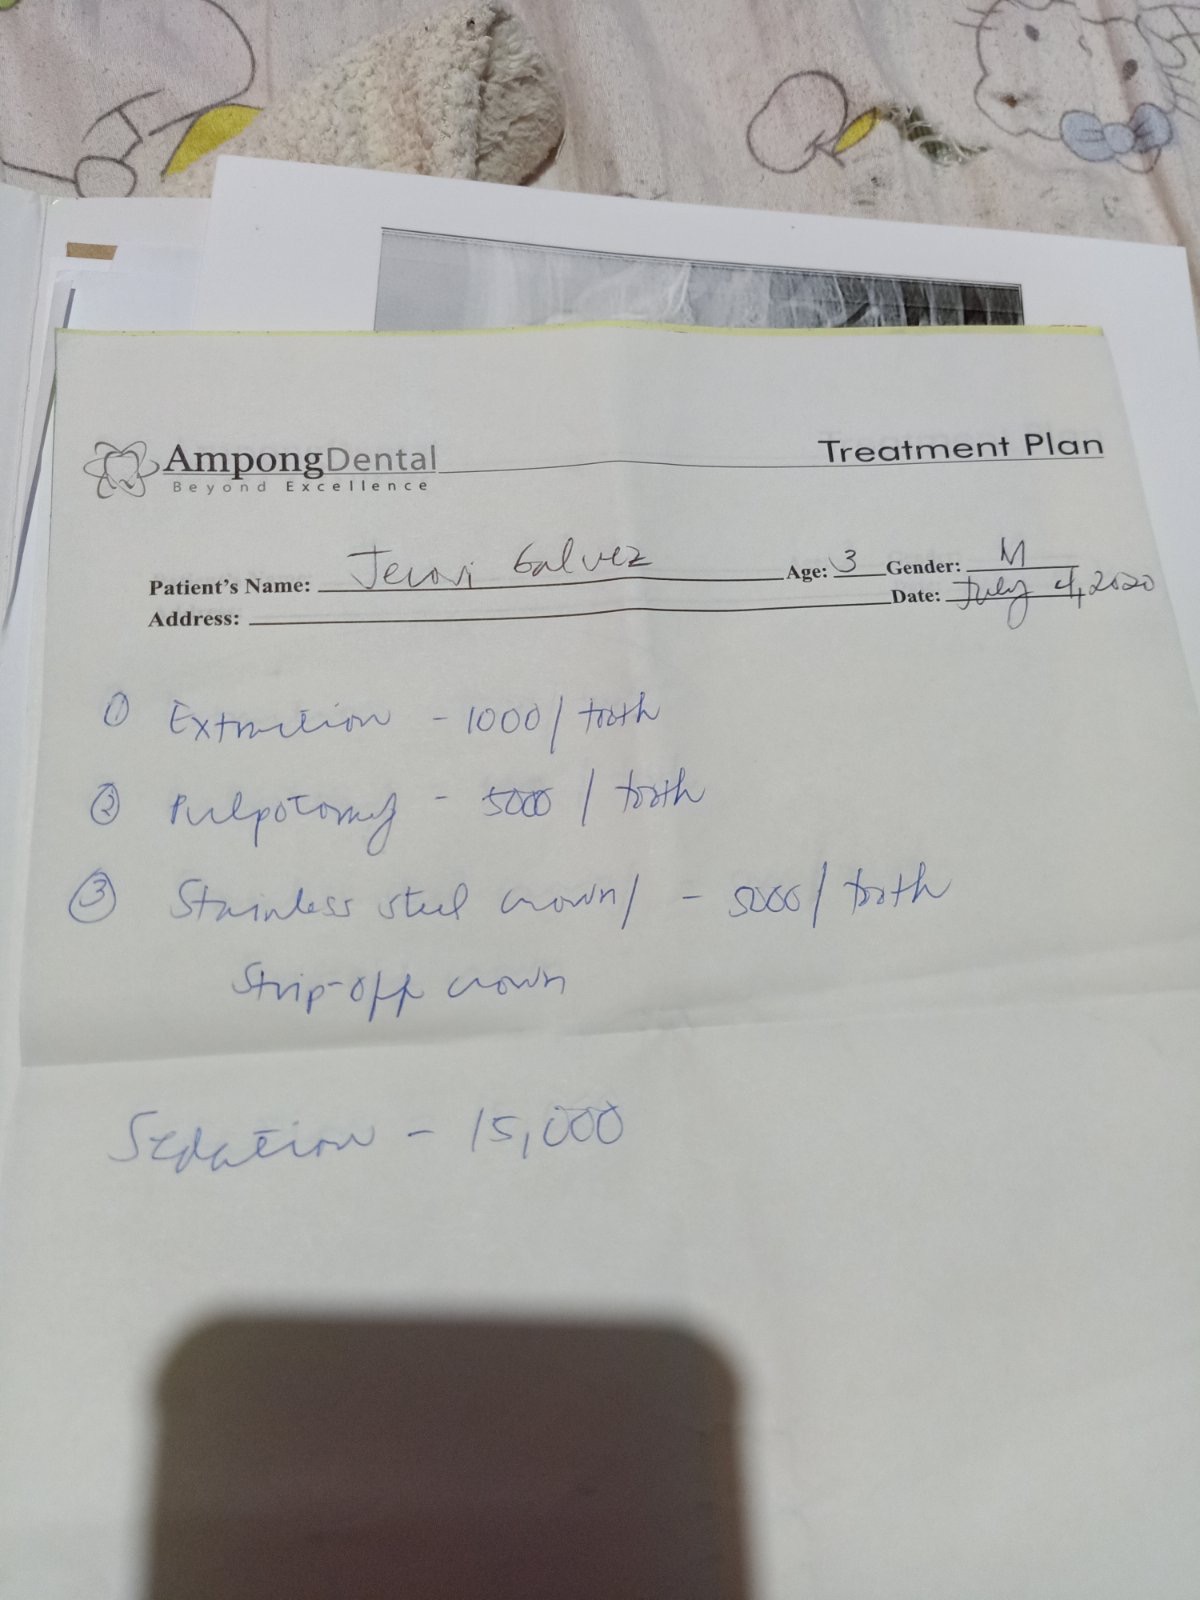 AmpongDental
Beyond Excellence
Treatment Plan
Patient's Name: Jerovi Galvez Age: 3 Gender: M
Address: Date: July 4, 2020
① Extraction - 1000/tooth
② Pulpotomy - 5000 / tooth
③ Stainless steel crown/ - 5000/tooth
Strip-off crown
Sedation - 15,000